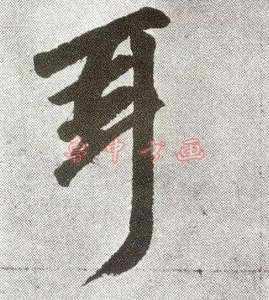 耳
中书画